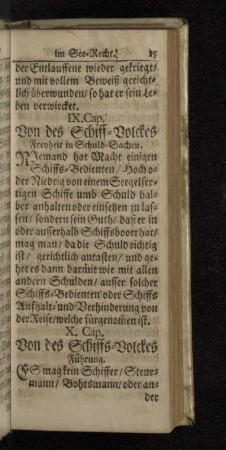 im See-Recht. 25
der Entlauffene wieder gekriegt/
und mit vollem Beweiß gericht-
lich überwunden/ so hat er sein Le-
ben verwircket.
IX. Cap.
Von des Schiff-Volckes
Freyheit in Schuld-Sachen.
Niemand hat Macht einigen
Schiffs-Bedienten/ Hoch o-
der Niedrig von einem Seegelfer-
tigen Schiffe umb Schuld hal-
ber anhalten oder einsetzen zu las-
sen/ sondern sein Guth/ daß er in
oder ausserhalb Schiffsboort hat/
mag man/ da die Schuld richtig
ist/ gerichtlich antasten/ und ge-
het es dann darmit wie mit allen
andern Schulden/ ausser solcher
Schiffs-Bedienten oder Schiffs
Auffhalt- und Verhinderung von
der Reise/ welche fürgenomen ist.
X. Cap.
Von des Schiffs-Volckes
Führung.
ES mag kein Schiffer/ Steur-
mann/ Bohtsmann/ oder an-
der